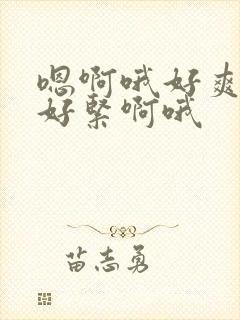 嗯啊哦好爽
好緊啊哦
苗志勇